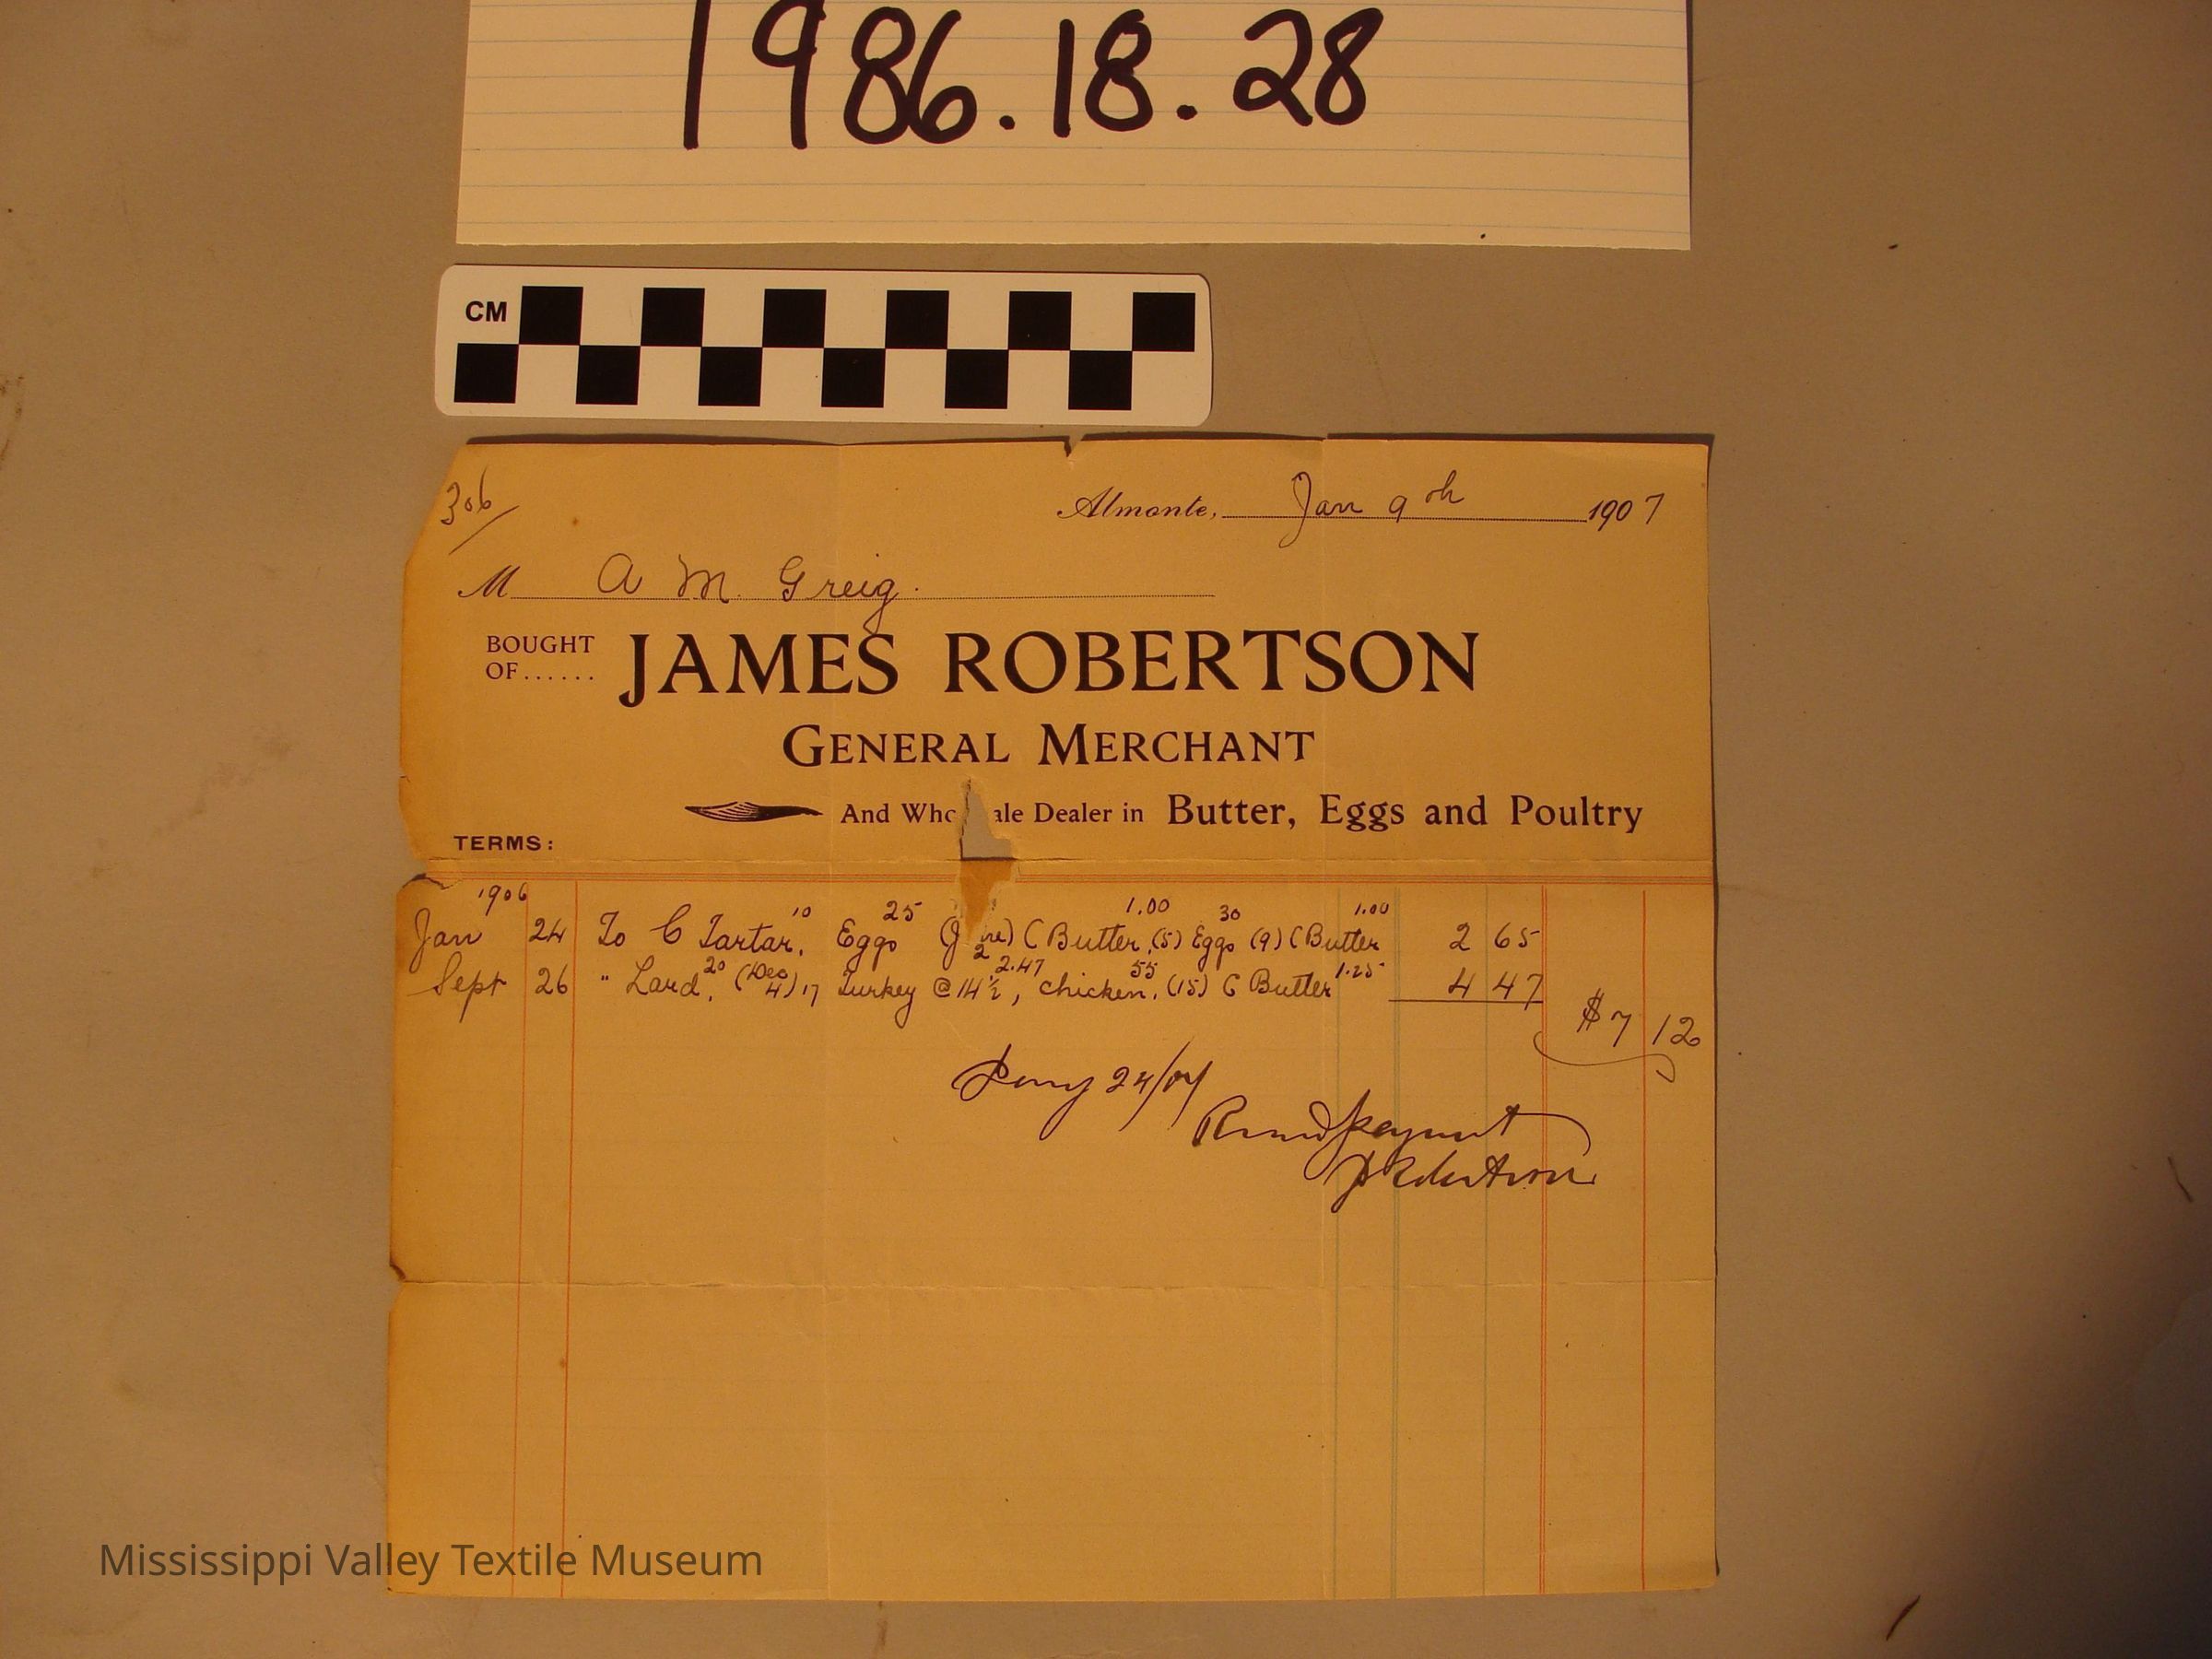 1986.18.28
CM
306/
Almonte, Jan 9th 1907
M A M. Greig.
BOUGHT
OF...... JAMES ROBERTSON
GENERAL MERCHANT
And Who ale Dealer in Butter, Eggs and Poultry
TERMS:
1906
Jan 24 To C Tartar, 10 Eggs 25 (J ne) 2 C Butter, 1.00 (5) Eggs 30 (9) C Butter 1.00 2 65
Sept 26 " Lard, 20 (Dec 4) 17 Turkey @ 14½, 2.47 chicken, 55 (15) C Butter 1.25 4 47
$7 12
24/07
payment
J Robertson
Mississippi Valley Textile Museum